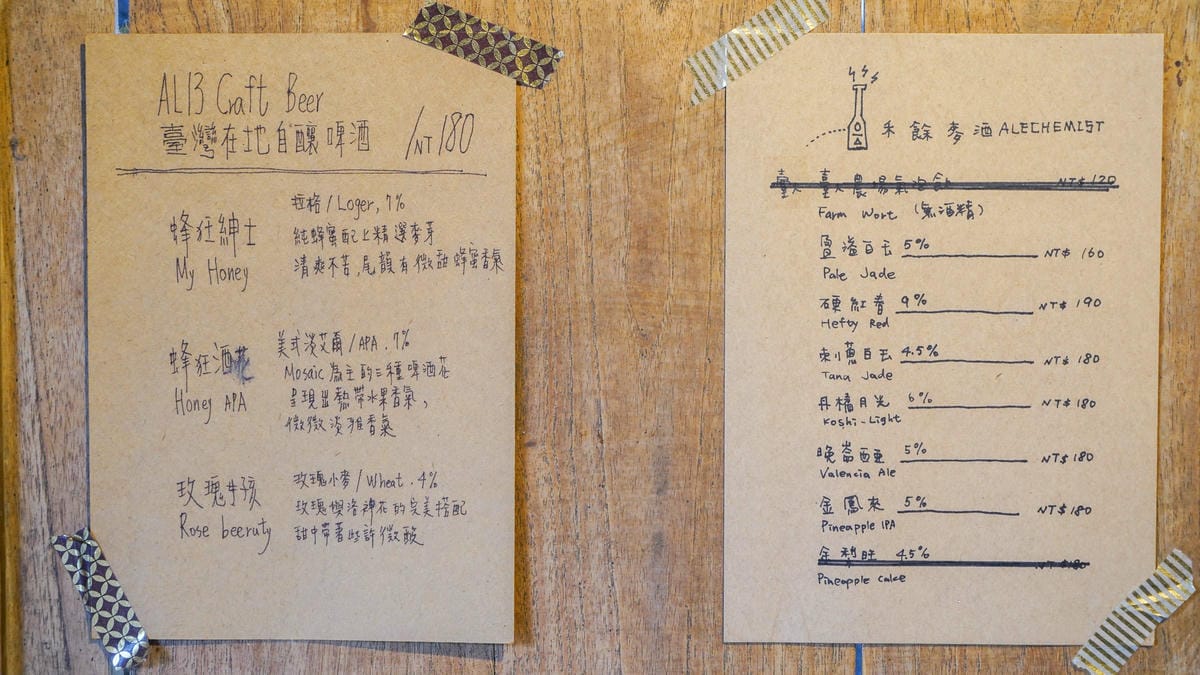 AL13 Craft Beer
臺灣在地自釀啤酒 /NT 180
蜂狂紳士
My Honey
拉格/Loger, 7%
純蜂蜜配上精選麥芽
清爽不苦,尾韻有微甜蜂蜜香氣
蜂狂酒花
Honey APA
美式淡艾爾/APA. 7%
Mosaic為主的三種啤酒花
呈現出熱帶水果香氣,
微微淡雅香氣
玫瑰
Rose beeruty
玫瑰小麥/Wheat. 4%
玫瑰與洛神花的完美搭配
甜中帶著些許微酸
禾餘麥酒 ALECHEMIST
NT$ 120
Farm Wort (無酒精)
白玉 5% NT$ 160
Pale Jade
硬紅春 9% NT$ 190
Hefty Red
刺蔥白玉 4.5% NT$ 180
Tana Jade
月光 6% NT$180
Koshi-Light
晚崙西亞 5% NT$180
Valencia Ale
金鳳來 5% NT$180
Pineapple IPA
金利旺 4.5% NT$180
Pineapple cake